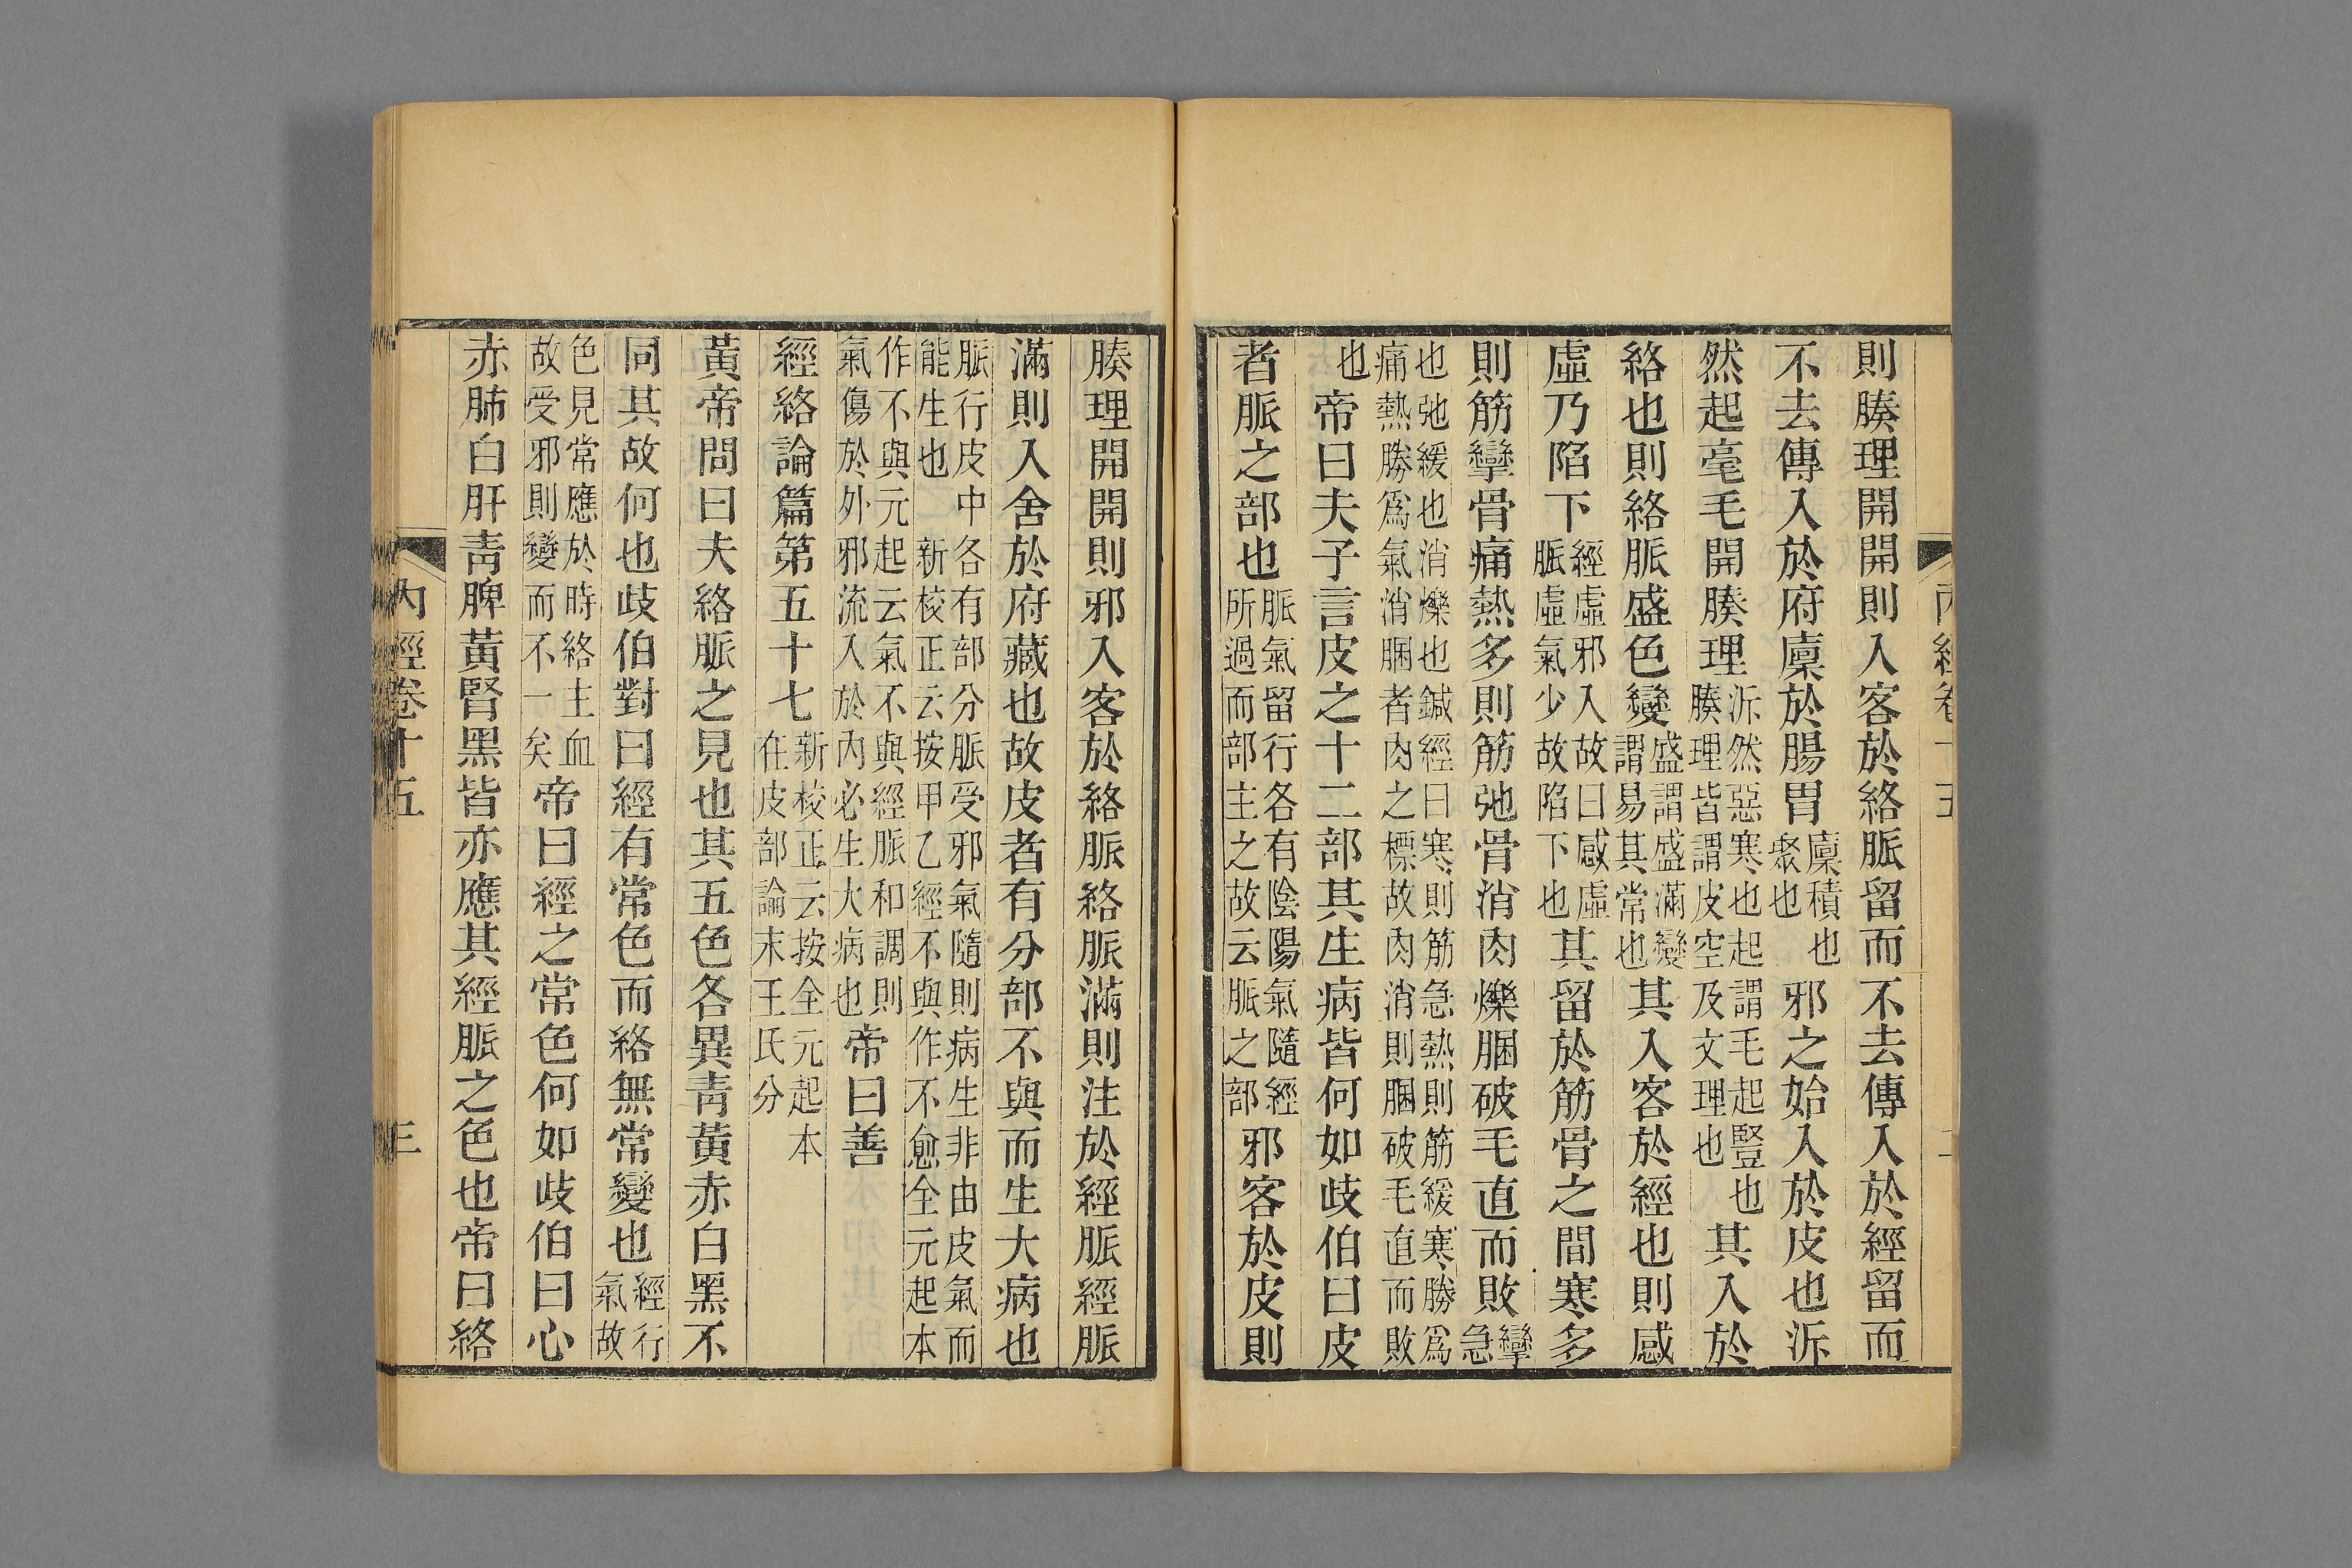 則腠理開開則入客於絡脈留而不去傳入於經留而
不去傳入於府廩於腸胃廩積也聚也邪之始入於皮也泝
然起毫毛開腠理泝然惡寒也起謂毛起豎也腠理皆謂皮空及文理也其入於
絡也則絡脈盛色變盛謂盛滿變謂易其常也其入客於經也則感
虛乃陷下經虛邪入故曰感虛脈虛氣少故陷下也其留於筋骨之間寒多
則筋攣骨痛熱多則筋弛骨消肉爍䐃破毛直而敗攣急
也弛緩也消爍也鍼經曰寒則筋急熱則筋緩寒勝爲痛熱勝爲氣消䐃者肉之標故肉消則䐃破毛直而敗
也帝曰夫子言皮之十二部其生病皆何如歧伯曰皮
者脈之部也脈氣留行各有陰陽氣隨經所過而部主之故云脈之部邪客於皮則
內經卷十五
腠理開開則邪入客於絡脈絡脈滿則注於經脈經脈
滿則入舍於府藏也故皮者有分部不與而生大病也
脈行皮中各有部分脈受邪氣隨則病生非由皮氣而能生也 新校正云按甲乙經不與作不愈全元起本
作不與元起云氣不與經脈和調則氣傷於外邪流入於內必生大病也帝曰善
經絡論篇第五十七新校正云按全元起本在皮部論末王氏分
黃帝問曰夫絡脈之見也其五色各異靑黃赤白黑不
同其故何也歧伯對曰經有常色而絡無常變也經行氣故
色見常應於時絡主血故受邪則變而不一矣帝曰經之常色何如歧伯曰心
赤肺白肝靑脾黃腎黑皆亦應其經脈之色也帝曰絡
內經卷十五 三